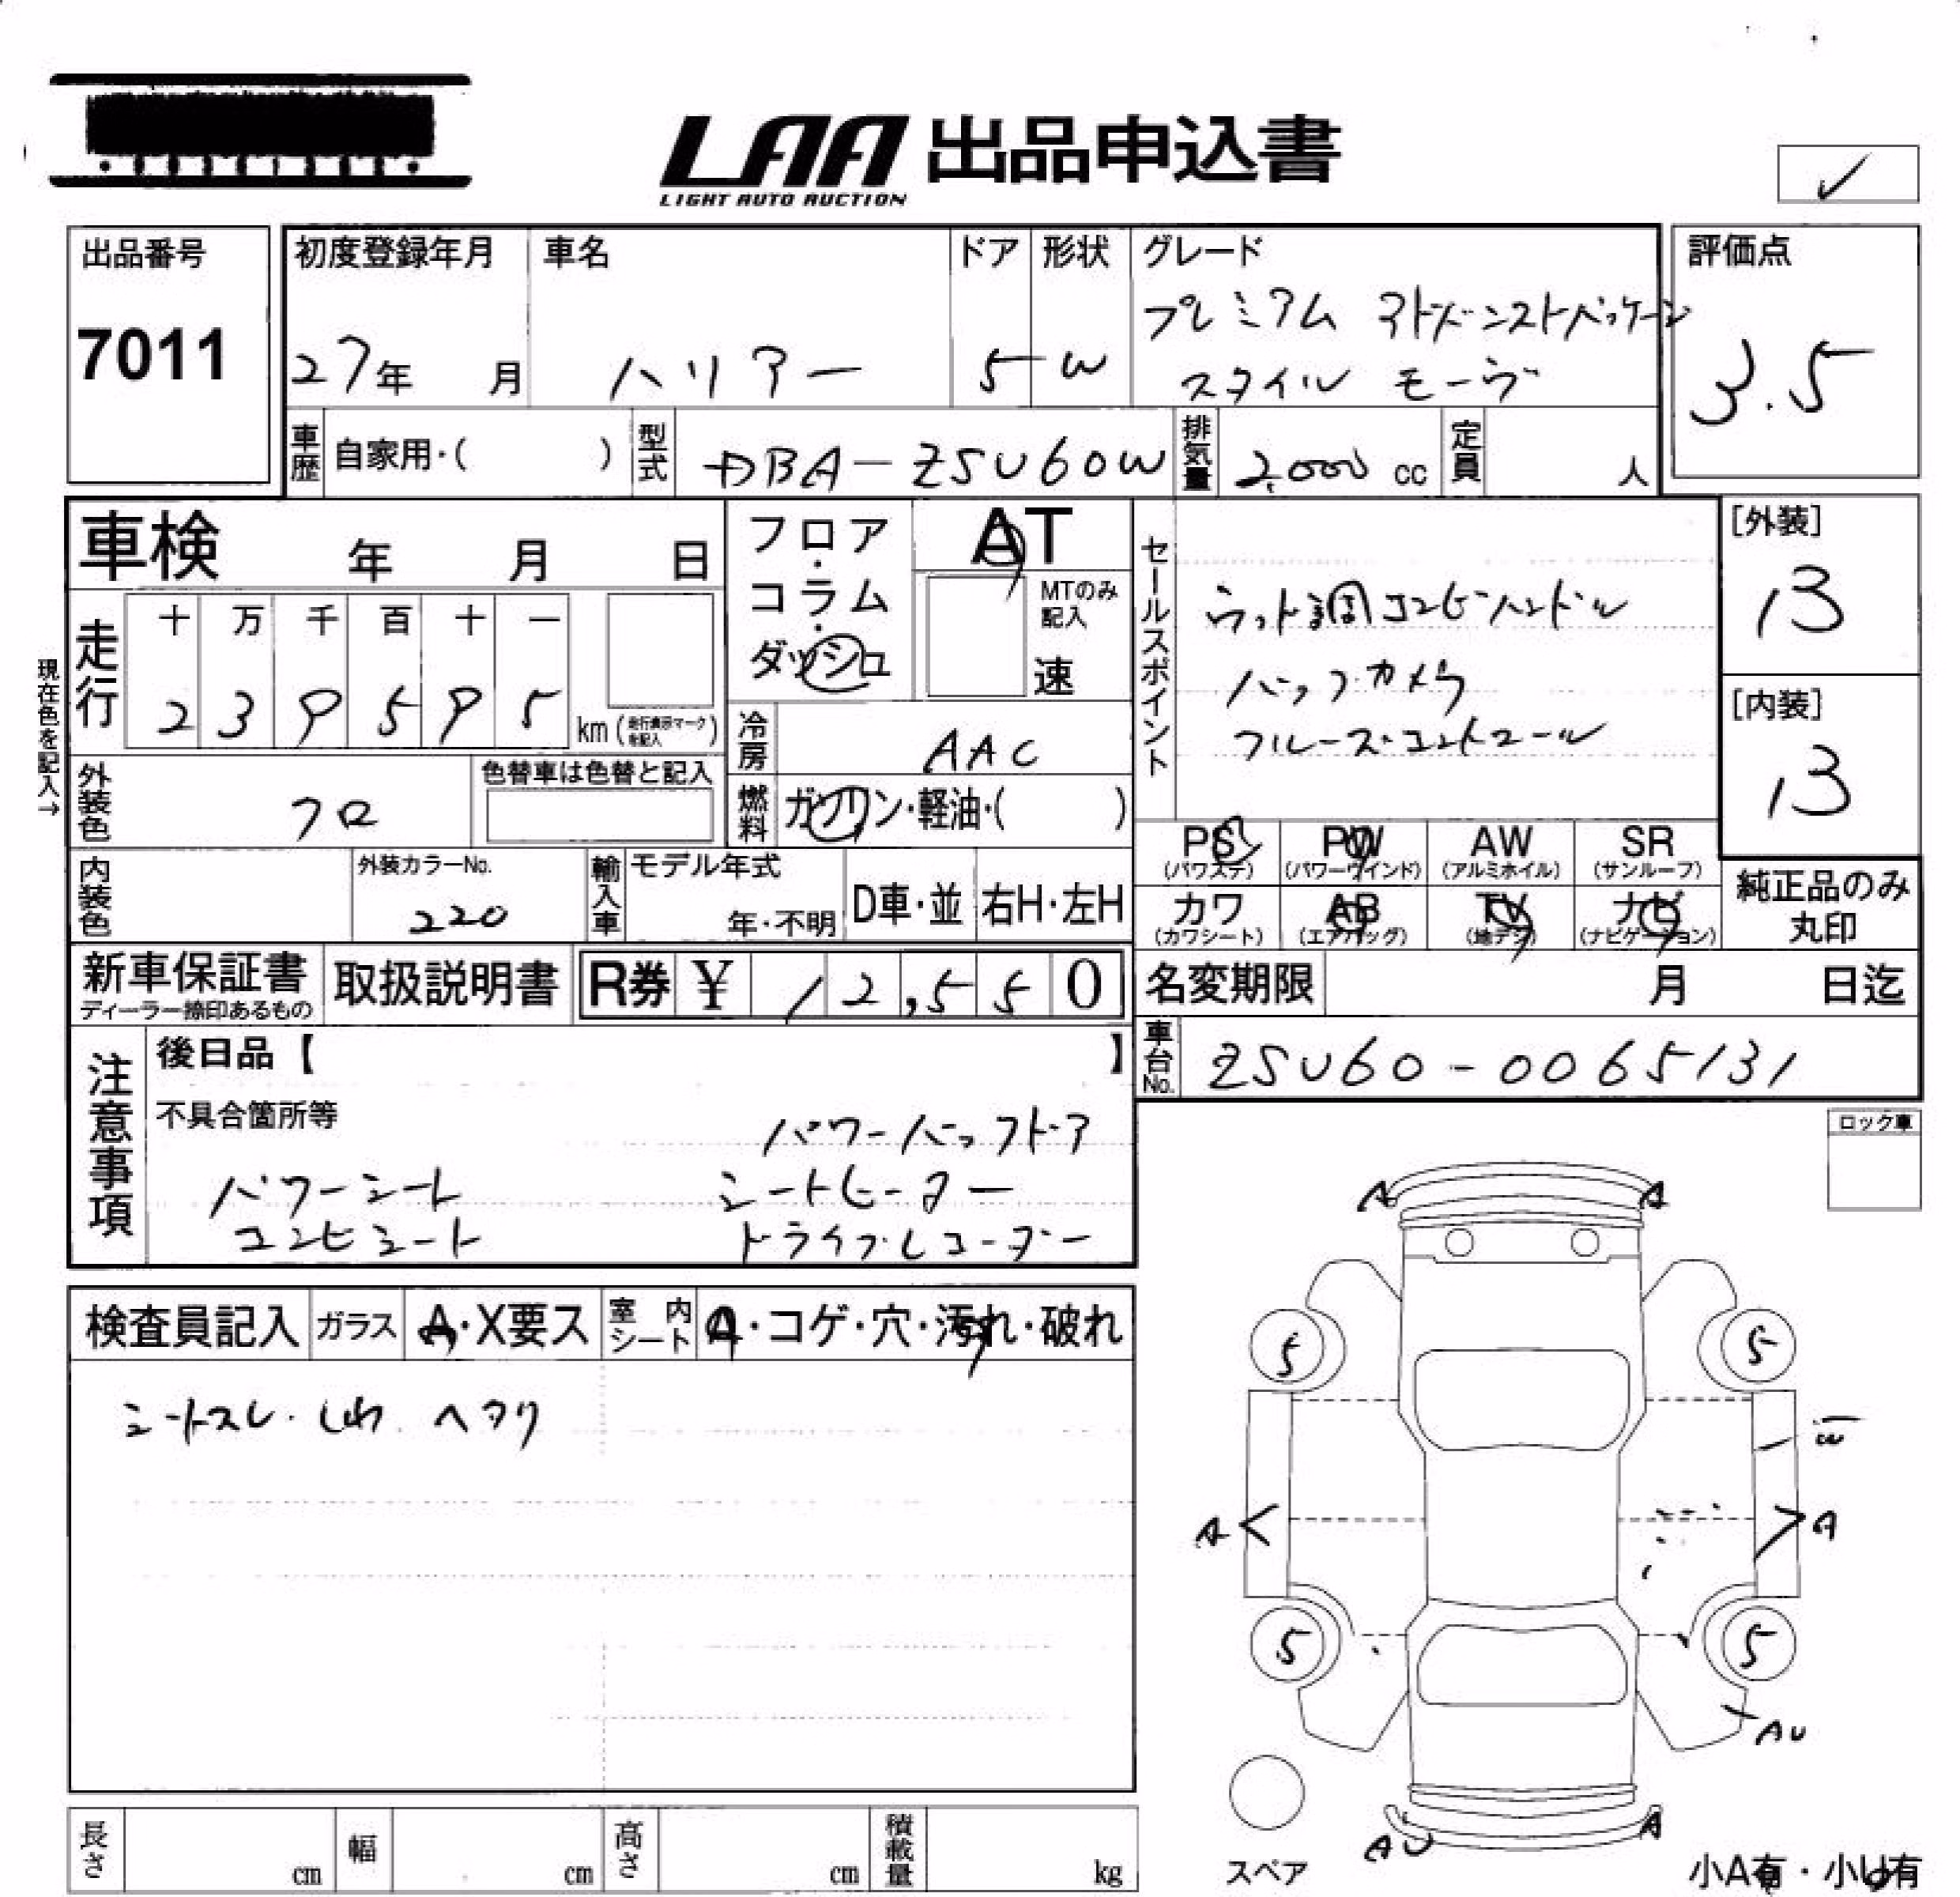 LAA 出品申込書
LIGHT AUTO AUCTION
✓
出品番号
7011
初度登録年月
27年 月
車名
ハリアー
ドア
5
形状
W
グレード
プレミアム アドバンストパッケージ
スタイル モーヴ
評価点
3.5
車歴 自家用・( )
型式 DBA-ZSU60W
排気量 2,000 cc
定員 人
車検 年 月 日
現在色を記入→
走行
十 万 千 百 十 一
2 3 9 5 9 5 km (走行表示マークを記入)
外装色 クロ
色替車は色替と記入
内装色
外装カラーNo.
220
輸入車
モデル年式
年・不明
D車・並
右H・左H
フロア・コラム・ダッシュ
AT
MTのみ記入
速
冷房 AAC
燃料 ガソリン・軽油・( )
セールスポイント
ウッド調コンビハンドル
バックカメラ
クルーズコントロール
[外装]
13
[内装]
13
PS (パワステ)
PW (パワーウインド)
AW (アルミホイル)
SR (サンルーフ)
カワ (カワシート)
AB (エアバッグ)
TV (地デジ)
ナビ (ナビゲーション)
純正品のみ丸印
新車保証書
ディーラー捺印あるもの
取扱説明書
R券 ¥ 12,550
名変期限 月 日迄
車台No. ZSU60-0065131
注意事項
後日品【 】
不具合箇所等
パワーバックドア
パワーシート シートヒーター
コンビシート ドライブレコーダー
ロック車
検査員記入
ガラス A・X要ス
室内シート A・コゲ・穴・汚れ・破れ
シートスレ・しわ ヘタリ
A A
5 5
A A
5 5
AU
AU A
スペア
小A有・小U有
長さ cm
幅 cm
高さ cm
積載量 kg